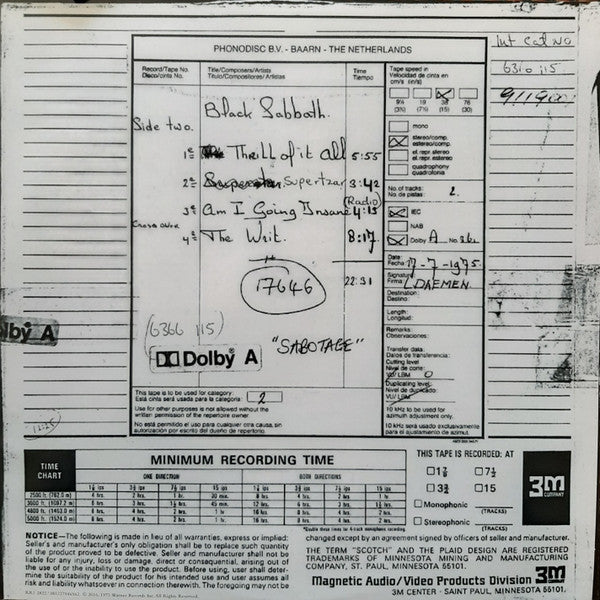 PHONODISC B.V. - BAARN - THE NETHERLANDS
Int Cat No
6310 115
9119001
Record/Tape No.
Disco/cinta No.
Title/Composers/Artists
Título/Compositores/Artistas
Time
Tiempo
Tape speed in
Velocidad de cinta en
cm/s (in/s)
9½ 19 38 76
(3¾) (7½) (15) (30)
Black Sabbath.
Side two.
1e Thrill of it all 5:55
2e Supertzar 3:42
3e Am I Going Insane (Radio) 4:15
4e The Writ. 8:17
22:31
17646
(6366 115)
"SABOTAGE"
Dolby A
lby A
mono
stereo/comp.
estereo/comp.
el. repr. stereo
el. repr. estereo
quadrophony
quadrofonia
No. of tracks: 2
No. de pistas:
IEC
NAB
Dolby A No. 362
Date:
Fecha: 17-7-1975
Signature
Firma: L DAEMEN
Destination:
Destino:
Length:
Longitud:
Remarks:
Observaciones:
Transfer data:
Datos de transferencia:
Cutting level
Nivel de corte:
VU/LBM 0
Duplicating level:
Nivel de duplicado:
VU/LBM
10 kHz to be used for
azimuth adjustment only.
10 kHz será usado exclusivamente
para el ajustamiento de azimut.
This tape is to be used for category:
Esta cinta será usada para la categoria: 2
Use for other purposes is not allowed without the
written permission of the repertoire owner
No está permitido el uso para cualquier otra causa, sin
autorización por escrito del dueño de repertorio.
TIME
CHART
MINIMUM RECORDING TIME
ONE DIRECTION BOTH DIRECTIONS
1⅞ ips 3¾ ips 7½ ips 15 ips 1⅞ ips 3¾ ips 7½ ips 15 ips
2500 ft. (762.0 m) 4 hrs. 2 hrs. 1 hr. 30 min. 8 hrs. 4 hrs. 2 hrs. 1 hr.
THIS TAPE IS RECORDED: AT
1⅞ 7½
3¾ 15
Monophonic (TRACKS)
Stereophonic (TRACKS)
3M
COMPANY
NOTICE—The following is made in lieu of all warranties, express or implied:
Seller's and manufacturer's only obligation shall be to replace such quantity
of the product proved to be defective. Neither seller nor manufacturer shall be
liable for any injury, loss or damage, direct or consequential, arising out of
the use of or the inability to use the product. Before using, user shall deter-
mine the suitability of the product for his intended use and user assumes all
risk and liability whatsoever in connection therewith. The foregoing may not be
changed except by an agreement signed by officers of seller and manufacturer.
THE TERM "SCOTCH" AND THE PLAID DESIGN ARE REGISTERED
TRADEMARKS OF MINNESOTA MINING AND MANUFACTURING
COMPANY, ST. PAUL, MINNESOTA 55101.
Magnetic Audio/Video Products Division 3M
3M CENTER · SAINT PAUL, MINNESOTA 55101.